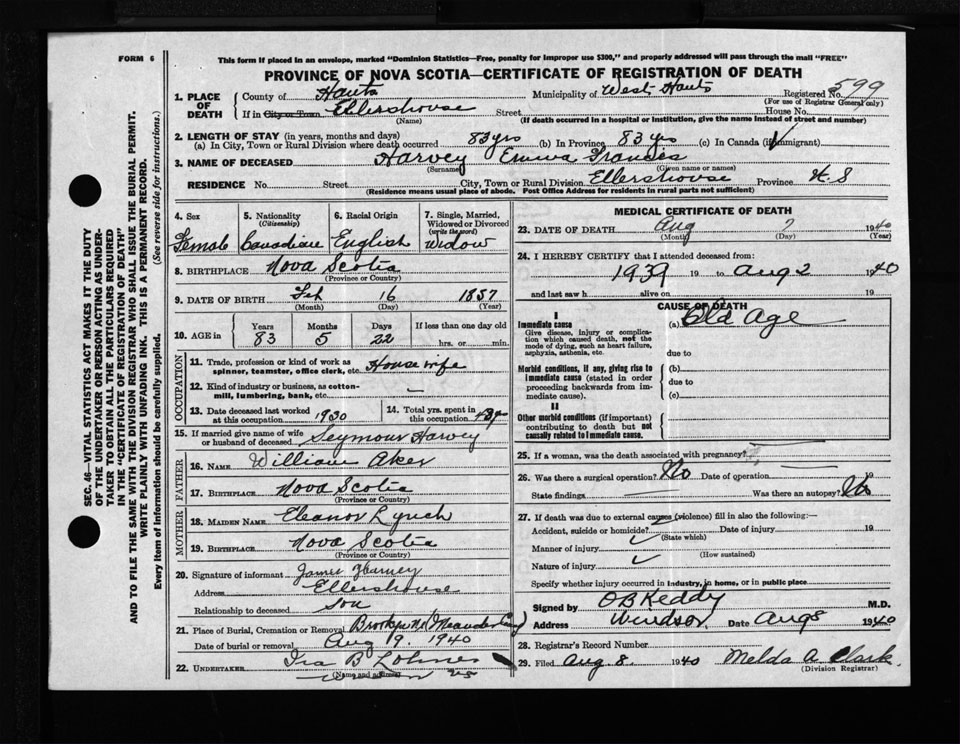 FORM 6
This form if placed in an envelope, marked "Dominion Statistics—Free, penalty for improper use $300," and properly addressed will pass through the mail "FREE"
PROVINCE OF NOVA SCOTIA—CERTIFICATE OF REGISTRATION OF DEATH
1. PLACE OF DEATH County of Hants Municipality of West Hants Registered No. 599
(For use of Registrar General only)
If in City or Town Ellershouse Street House No.
(Name) (If death occurred in a hospital or institution, give the name instead of street and number)
2. LENGTH OF STAY (in years, months and days)
(a) In City, Town or Rural Division where death occurred 83 yrs (b) In Province 83 yrs (c) In Canada (if immigrant)
3. NAME OF DECEASED Harvey Emma Frances
(Surname) (Given name or names)
RESIDENCE No. Street City, Town or Rural Division Ellershouse Province N.S
(Residence means usual place of abode. Post Office Address for residents in rural parts not sufficient)
4. Sex Female
5. Nationality (Citizenship) Canadian
6. Racial Origin English
7. Single, Married, Widowed or Divorced (write the word) Widow
8. BIRTHPLACE Nova Scotia
(Province or Country)
9. DATE OF BIRTH Feb 16 1857
(Month) (Day) (Year)
10. AGE in Years 83 Months 5 Days 22 If less than one day old hrs. or min.
OCCUPATION
11. Trade, profession or kind of work as spinner, teamster, office clerk, etc. House wife
12. Kind of industry or business, as cotton-mill, lumbering, bank, etc. —
13. Date deceased last worked at this occupation 1930
14. Total yrs. spent in this occupation
15. If married give name of wife or husband of deceased Seymour Harvey
FATHER
16. NAME William Aker
17. BIRTHPLACE Nova Scotia
(Province or Country)
MOTHER
18. MAIDEN NAME Eleanor Lynch
19. BIRTHPLACE Nova Scotia
(Province or Country)
20. Signature of informant James Harvey
Address Ellershouse
Relationship to deceased Son
21. Place of Burial, Cremation or Removal
Date of burial or removal Aug 9. 1940
22. UNDERTAKER Ira B
(Name and address)
MEDICAL CERTIFICATE OF DEATH
23. DATE OF DEATH Aug 7 1940
(Month) (Day) (Year)
24. I HEREBY CERTIFY that I attended deceased from:
1939 19 to Aug 2 1940
and last saw h alive on 19
CAUSE OF DEATH
I
Immediate cause (a) Old Age
Give disease, injury or complication which caused death, not the mode of dying, such as heart failure, asphyxia, asthenia, etc.
due to
Morbid conditions, if any, giving rise to immediate cause (stated in order proceeding backwards from immediate cause).
(b)
due to
(c)
II
Other morbid conditions (if important) contributing to death but not causally related to immediate cause.
25. If a woman, was the death associated with pregnancy?
26. Was there a surgical operation? No Date of operation 19
State findings Was there an autopsy? No
27. If death was due to external causes (violence) fill in also the following:—
Accident, suicide or homicide? Date of injury 19
(State which)
Manner of injury
(How sustained)
Nature of injury
Specify whether injury occurred in industry, in home, or in public place
Signed by O B Keddy M.D.
Address Windsor Date Aug 8 1940
28. Registrar's Record Number
29. Filed Aug. 8. 1940 Melda A. Clark.
(Division Registrar)
SEC. 46—VITAL STATISTICS ACT MAKES IT THE DUTY
OF THE UNDERTAKER OR PERSON ACTING AS UNDER-
TAKER TO OBTAIN ALL THE PARTICULARS REQUIRED
IN THE "CERTIFICATE OF REGISTRATION OF DEATH"
AND TO FILE THE SAME WITH THE DIVISION REGISTRAR WHO SHALL ISSUE THE BURIAL PERMIT.
WRITE PLAINLY WITH UNFADING INK. THIS IS A PERMANENT RECORD.
Every item of information should be carefully supplied. (See reverse side for instructions.)